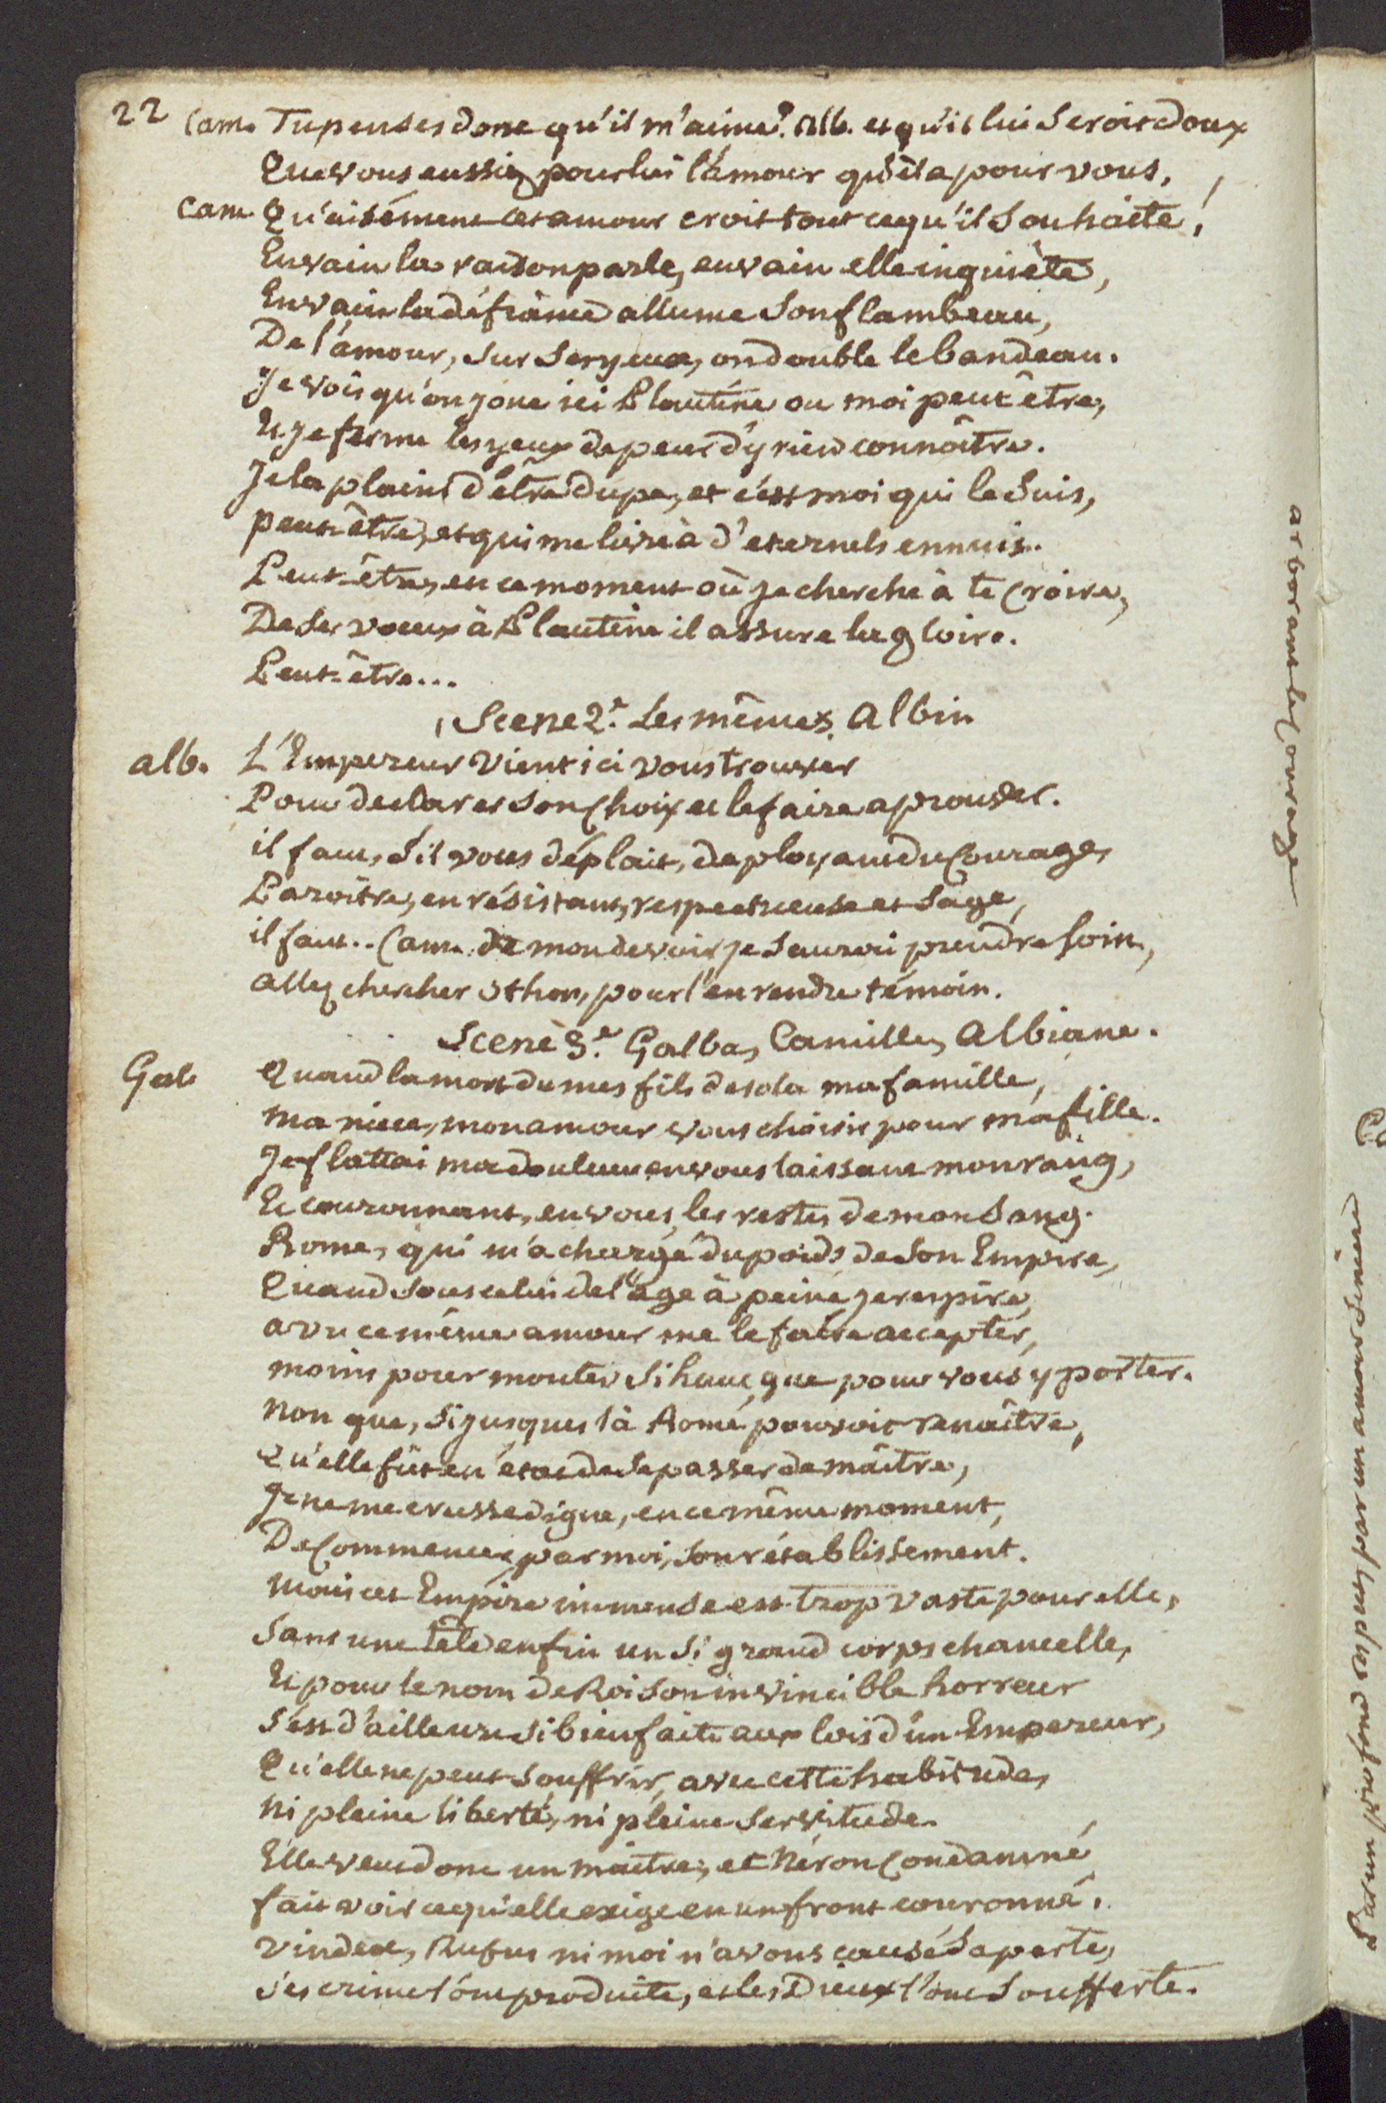 22
Cam. Tu penses donc qu'il m'aime? Alb. et qu'il lui Seroit doux
Que vous eussiez pour lui l'amour qu'il a pour vous,
Cam. Qu'aisément cet amour croit tout ce qu'il Souhaite!
En vain la raison parle, en vain elle inquiète,
En vain la défiance allume Son flambeau,
De l'amour, Sur Ses yeux, on double le bandeau.
Je vois qu'on joue ici Plautine ou moi peut être,
Et je ferme les yeux de peur d'y rien connoître.
Je la plains d'être dupe, et c'est moi qui le Suis,
peut-être, et qui me livre à d'eternels ennuis.
Peut-être, en ce moment où je cherche à te Croire,
De Ses voeux à Plautine il assure la gloire.
Peut-être...
Scene 2e. Les mêmes, Albin
alb. L'Empereur Vient ici vous trouver
Pour declarer Son Choix et le faire aprouver.
il faut, S'il vous déplait, deployant du Courage,
Paroitre, en résistant, respectueuse et Sage,
il faut.. Cam. de mon devoir je Saurai prendre Soin,
allez chercher Othon, pour l'en rendre témoin.
Scene 3e. Galba, Camille, Albiane.
Gal. Quand la mort de mes fils desola ma famille,
ma niece, mon amour vous choisit pour ma fille.
Je flattai ma douleur en vous laissant mon rang,
Et couronnant, en vous, les restes de mon Sang.
Rome, qui m'a chargé du poids de Son Empire,
Quand Sous celui de l'âge à peine je respire,
a vu ce même amour me le faire accepter,
moins pour monter Si haut, que pour vous y porter.
Non que, Si jusques là Rome pouvoit renaître,
Qu'elle fût en etat de Se passer de maître,
Je ne me crusse digne, en ce même moment,
De Commencer par moi, Son rétablissement.
Mais cet Empire immense est trop Vaste pour elle,
Sans une tête enfin un Si grand corps chancelle,
Et pour le nom de Roi Son invincible horreur
S'est d'ailleurs Si bien faite aux lois d'un Empereur,
Qu'elle ne peut Souffrir, avec cette habitude,
Ni pleine liberté, ni pleine Servitude.
Elle veut donc un maitre, et Néron Condamné
fait voir ce qu'elle exige en un front couronné.
Vindex, Rufus ni moi n'avons causé Sa perte,
Ses crimes l'ont produite, et les Dieux l'ont Soufferte.
arborant le Courage
Par un profond respect, par un amour Sincere